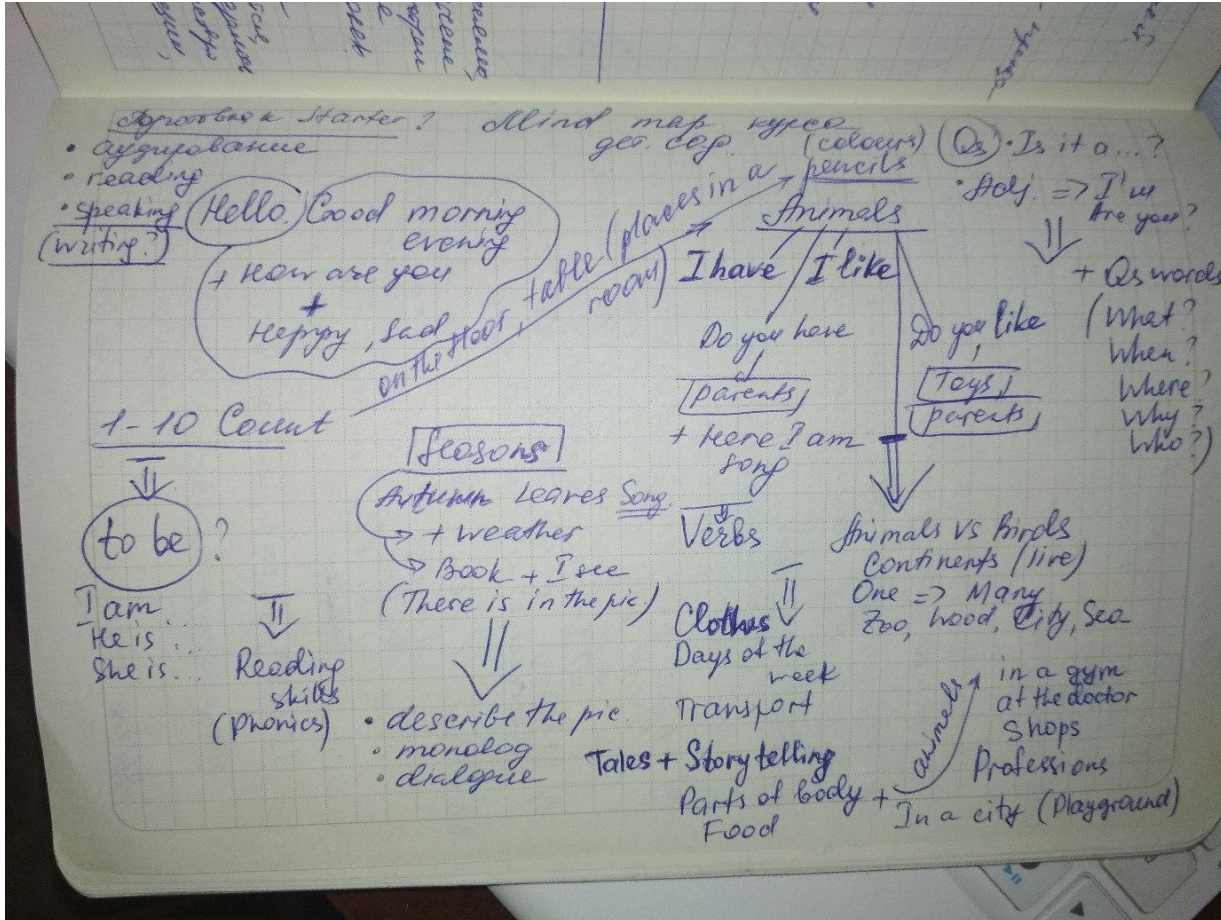 Подготовка к Starter? Mind map курса
дет. сад
• аудирование
• reading
• speaking
(writing?)
Hello. Good morning
evening
+ How are you
+
Heppy, Sad
on the floor, table (places in a
room)
(colours)
pencils
Animals
I have I like
Do you have
parents
+ Here I am
song
Do you like
Toys,
parents,
Qs • Is it a...?
• Adj. => I'm
Are you?
+ Qs words
(What?
When?
Where?
Why?
Who?)
1-10 Count
to be ?
I am
He is...
She is...
Reading
skills
(Phonics)
Seasons
Autumn Leaves Song
+ weather
Book + I see
(There is in the pic)
• describe the pic.
• monolog
• dialogue
Verbs
Clothes
Days of the
week
Transport
Tales + Storytelling
Parts of body +
Food
Animals vs Birds
Continents (live)
One => Many
Zoo, Wood, City, Sea
animals
in a gym
at the doctor
Shops
Professions
In a city (Playground)